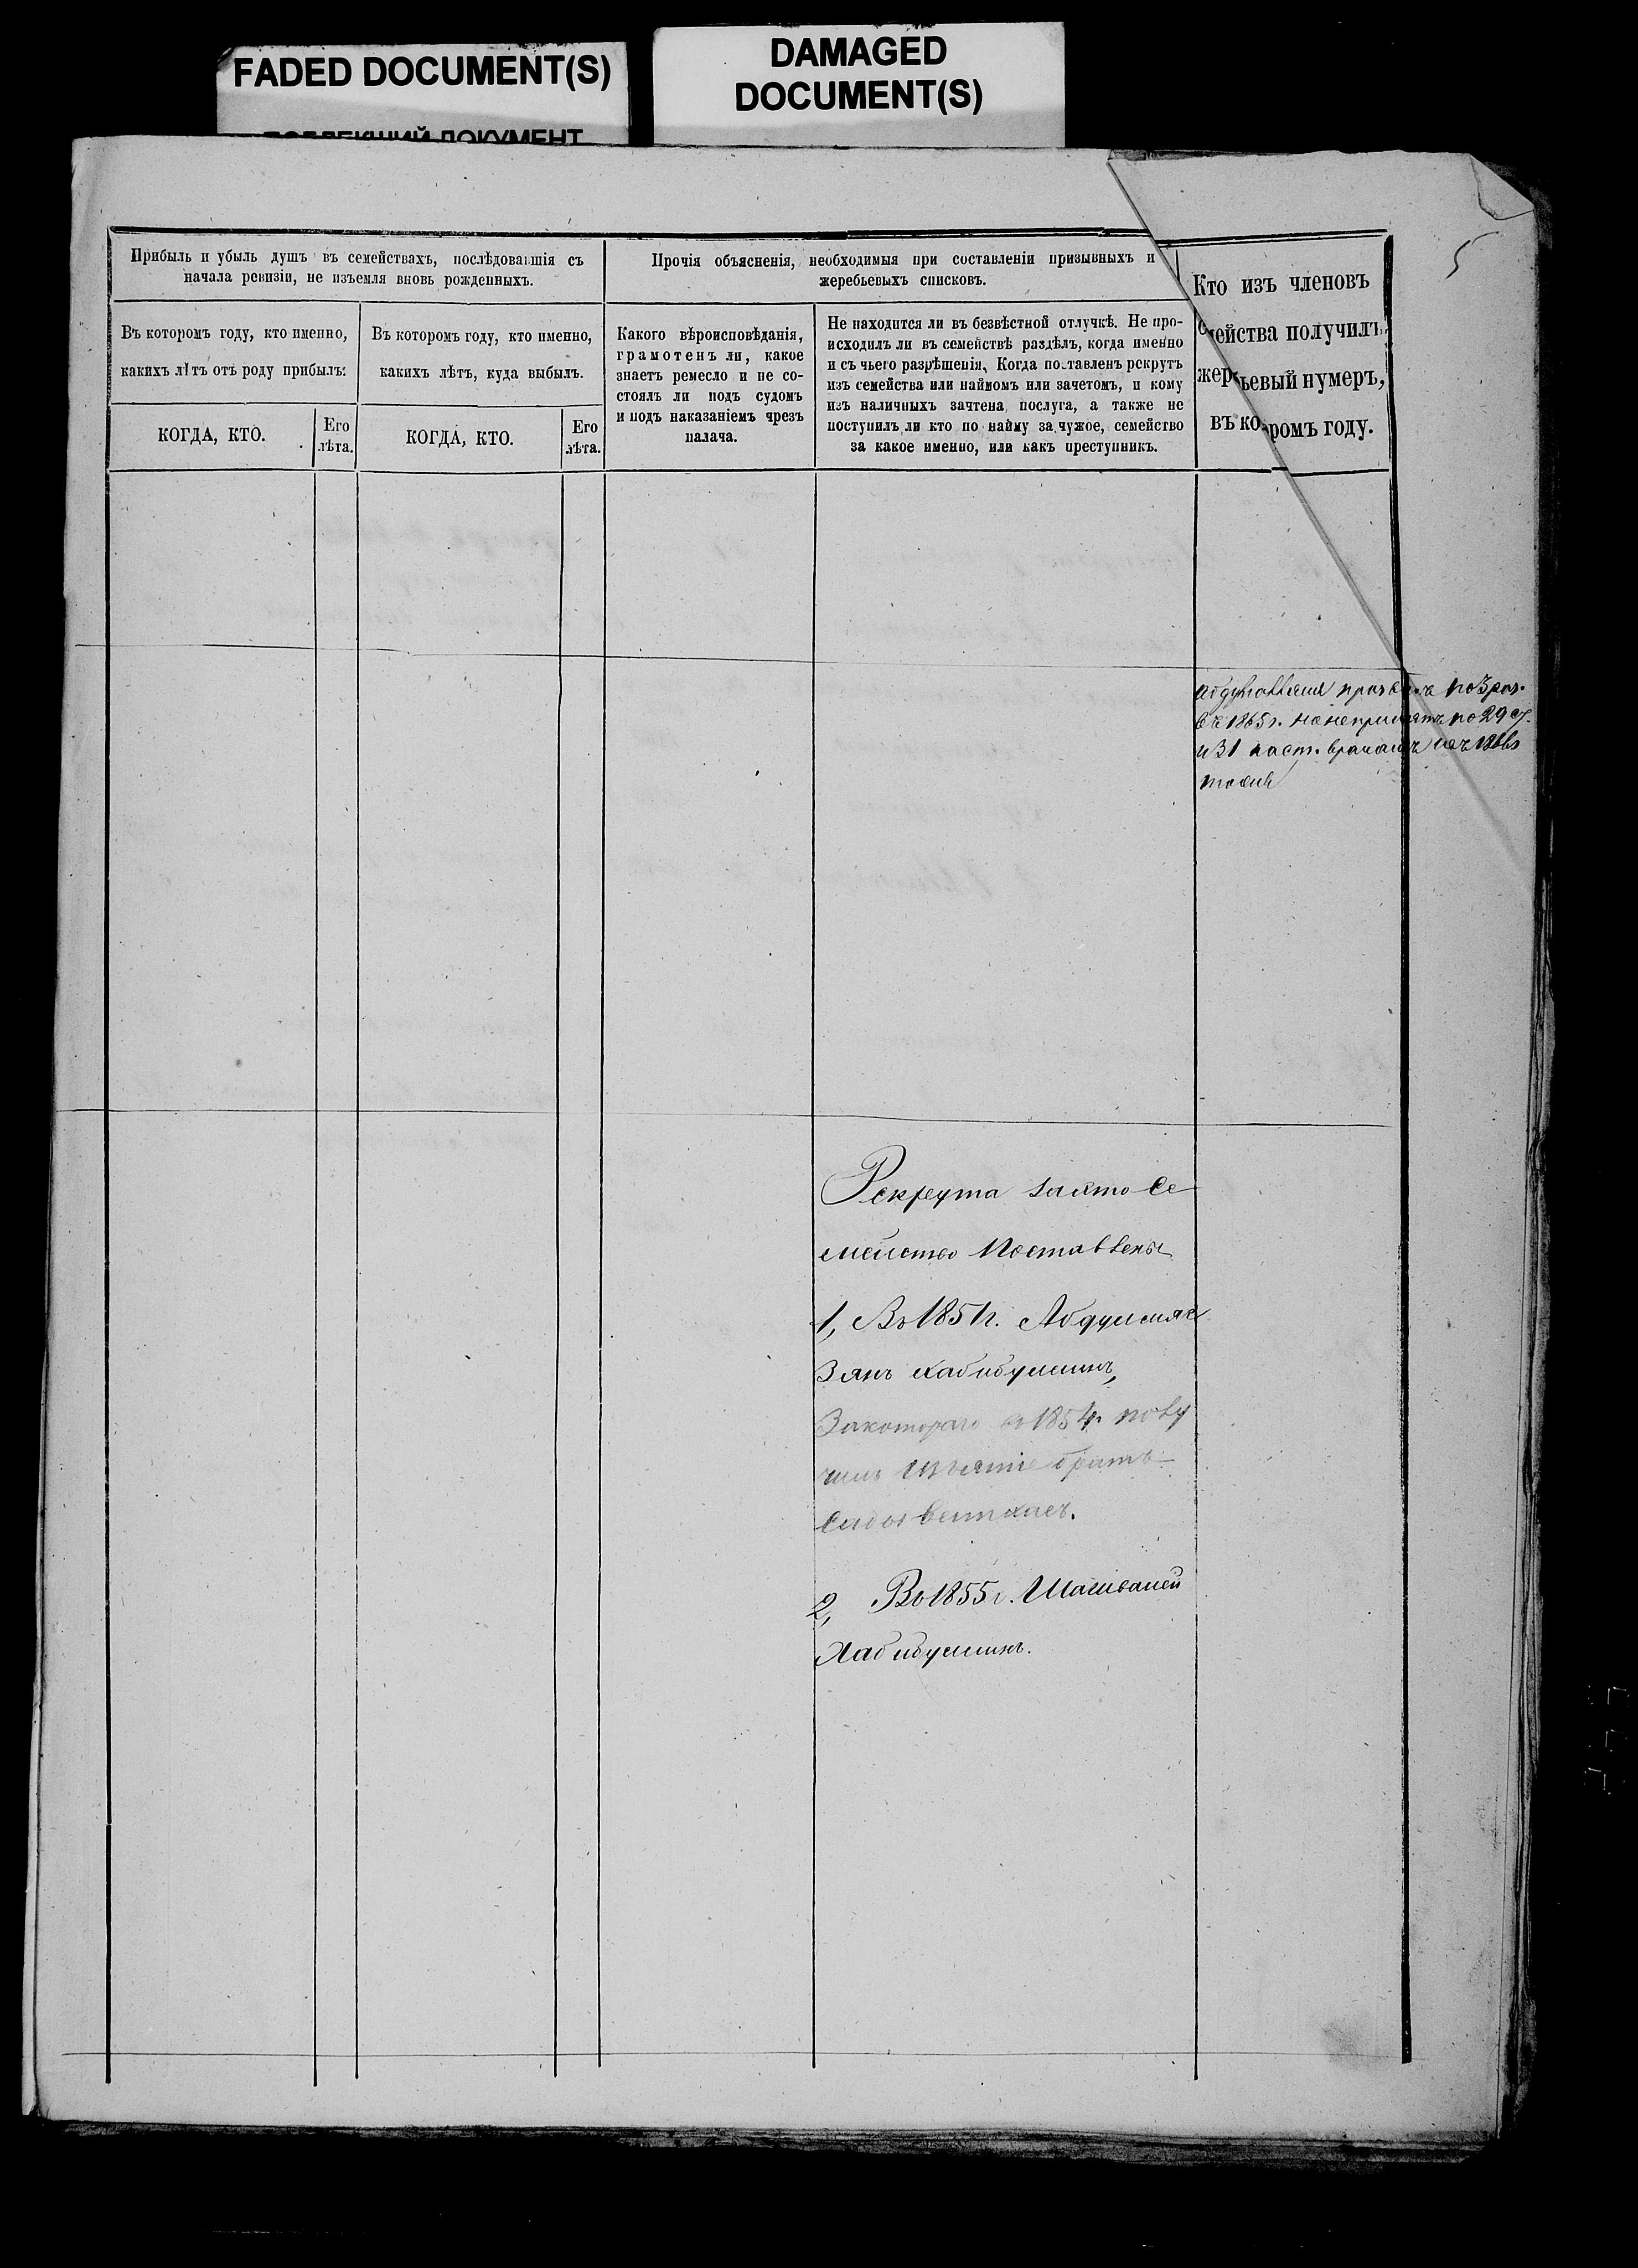 FADED DOCUMENT(S)
DAMAGED
DOCUMENT(S)
ДОКУМЕНТ
5
Прибыль и убыль душъ въ семействахъ, послѣдовавшія съ
начала ревизіи, не изъемля вновь рожденныхъ.
Въ которомъ году, кто именно,
какихъ лѣтъ отъ роду прибылъ:
КОГДА, КТО.
Его
лѣта.
Въ которомъ году, кто именно,
какихъ лѣтъ, куда выбылъ.
КОГДА, КТО.
Его
лѣта.
Прочія объясненія, необходимыя при составленіи призывныхъ и
жеребьевыхъ списковъ.
Какого вѣроисповѣданія,
грамотенъ ли, какое
знаетъ ремесло и не со-
стоялъ ли подъ судомъ
и подъ наказаніемъ чрезъ
палача.
Не находится ли въ безвѣстной отлучкѣ. Не про-
исходилъ ли въ семействѣ раздѣлъ, когда именно
и съ чьего разрѣшенія, Когда поставленъ рекрутъ
изъ семейства или наймомъ или зачетомъ, и кому
изъ наличныхъ зачтена послуга, а также не
поступилъ ли кто по найму за чужое, семейство
за какое именно, или какъ преступникъ.
Кто изъ членовъ
ейства получилъ
жер ьевый нумеръ,
въ ко ромъ году.
по 3 раз.
въ 1865 г. но не принятъ по 29 ст.
и 31 наст. врачамъ
Рекрута за это се
мейство поставлены
1, Въ 1851 г.
Зянъ Хабибуллинъ,
За котораго въ 1854 г. полу
чилъ изъятіе братъ
2, Въ 1855 г.
Хабибуллинъ.